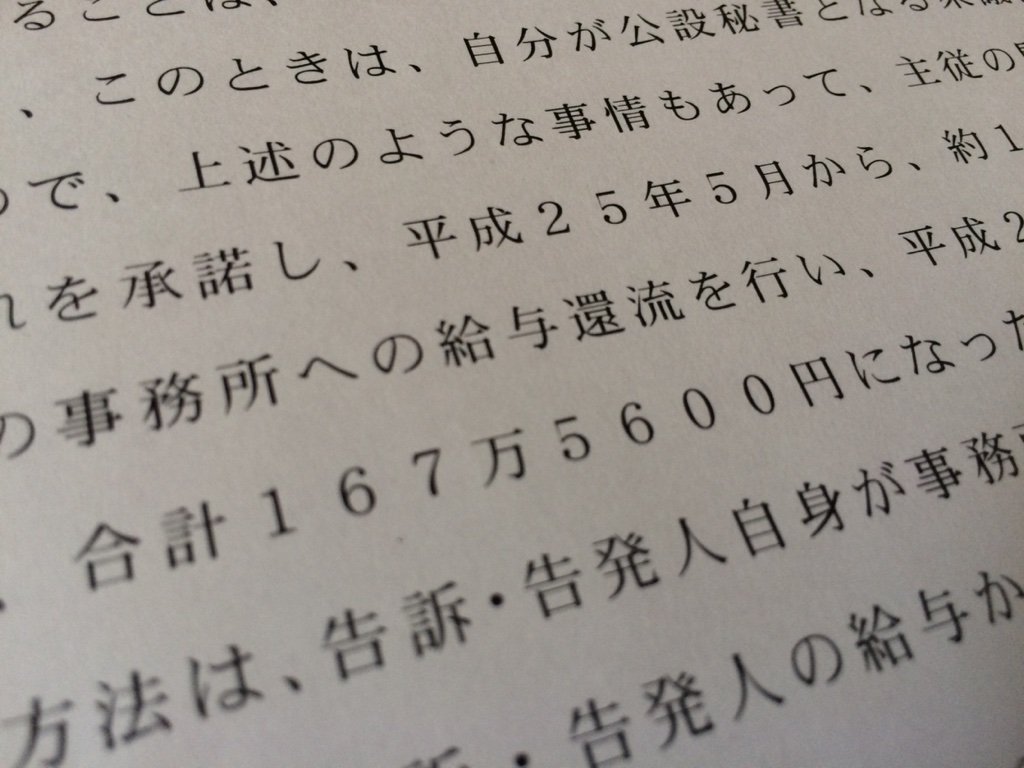 ることは、
、このときは、自分が公設秘書となる
で、上述のような事情もあって、主従の
を承諾し、平成２５年５月から、約１
の事務所への給与還流を行い、平成２
合計１６７万５６００円になった
方法は、告訴・告発人自身が事務所
・告発人の給与か